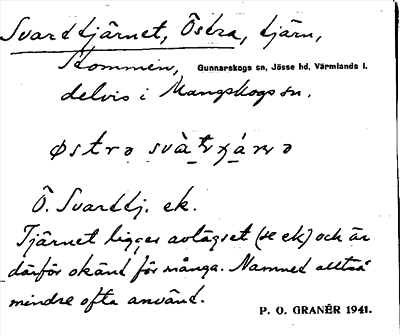 Svarttjärnet, Östra, tjärn,
Kommen, Gunnarskogs sn, Jösse hd, Värmlands l.
delvis i Mangskogs sn.
Ö. Svarttj. ek.
Tjärnet ligger avlägset (se ek) och är
därför okänd för många. Namnet alltså
mindre ofta använd.
P. O. GRANÉR 1941.